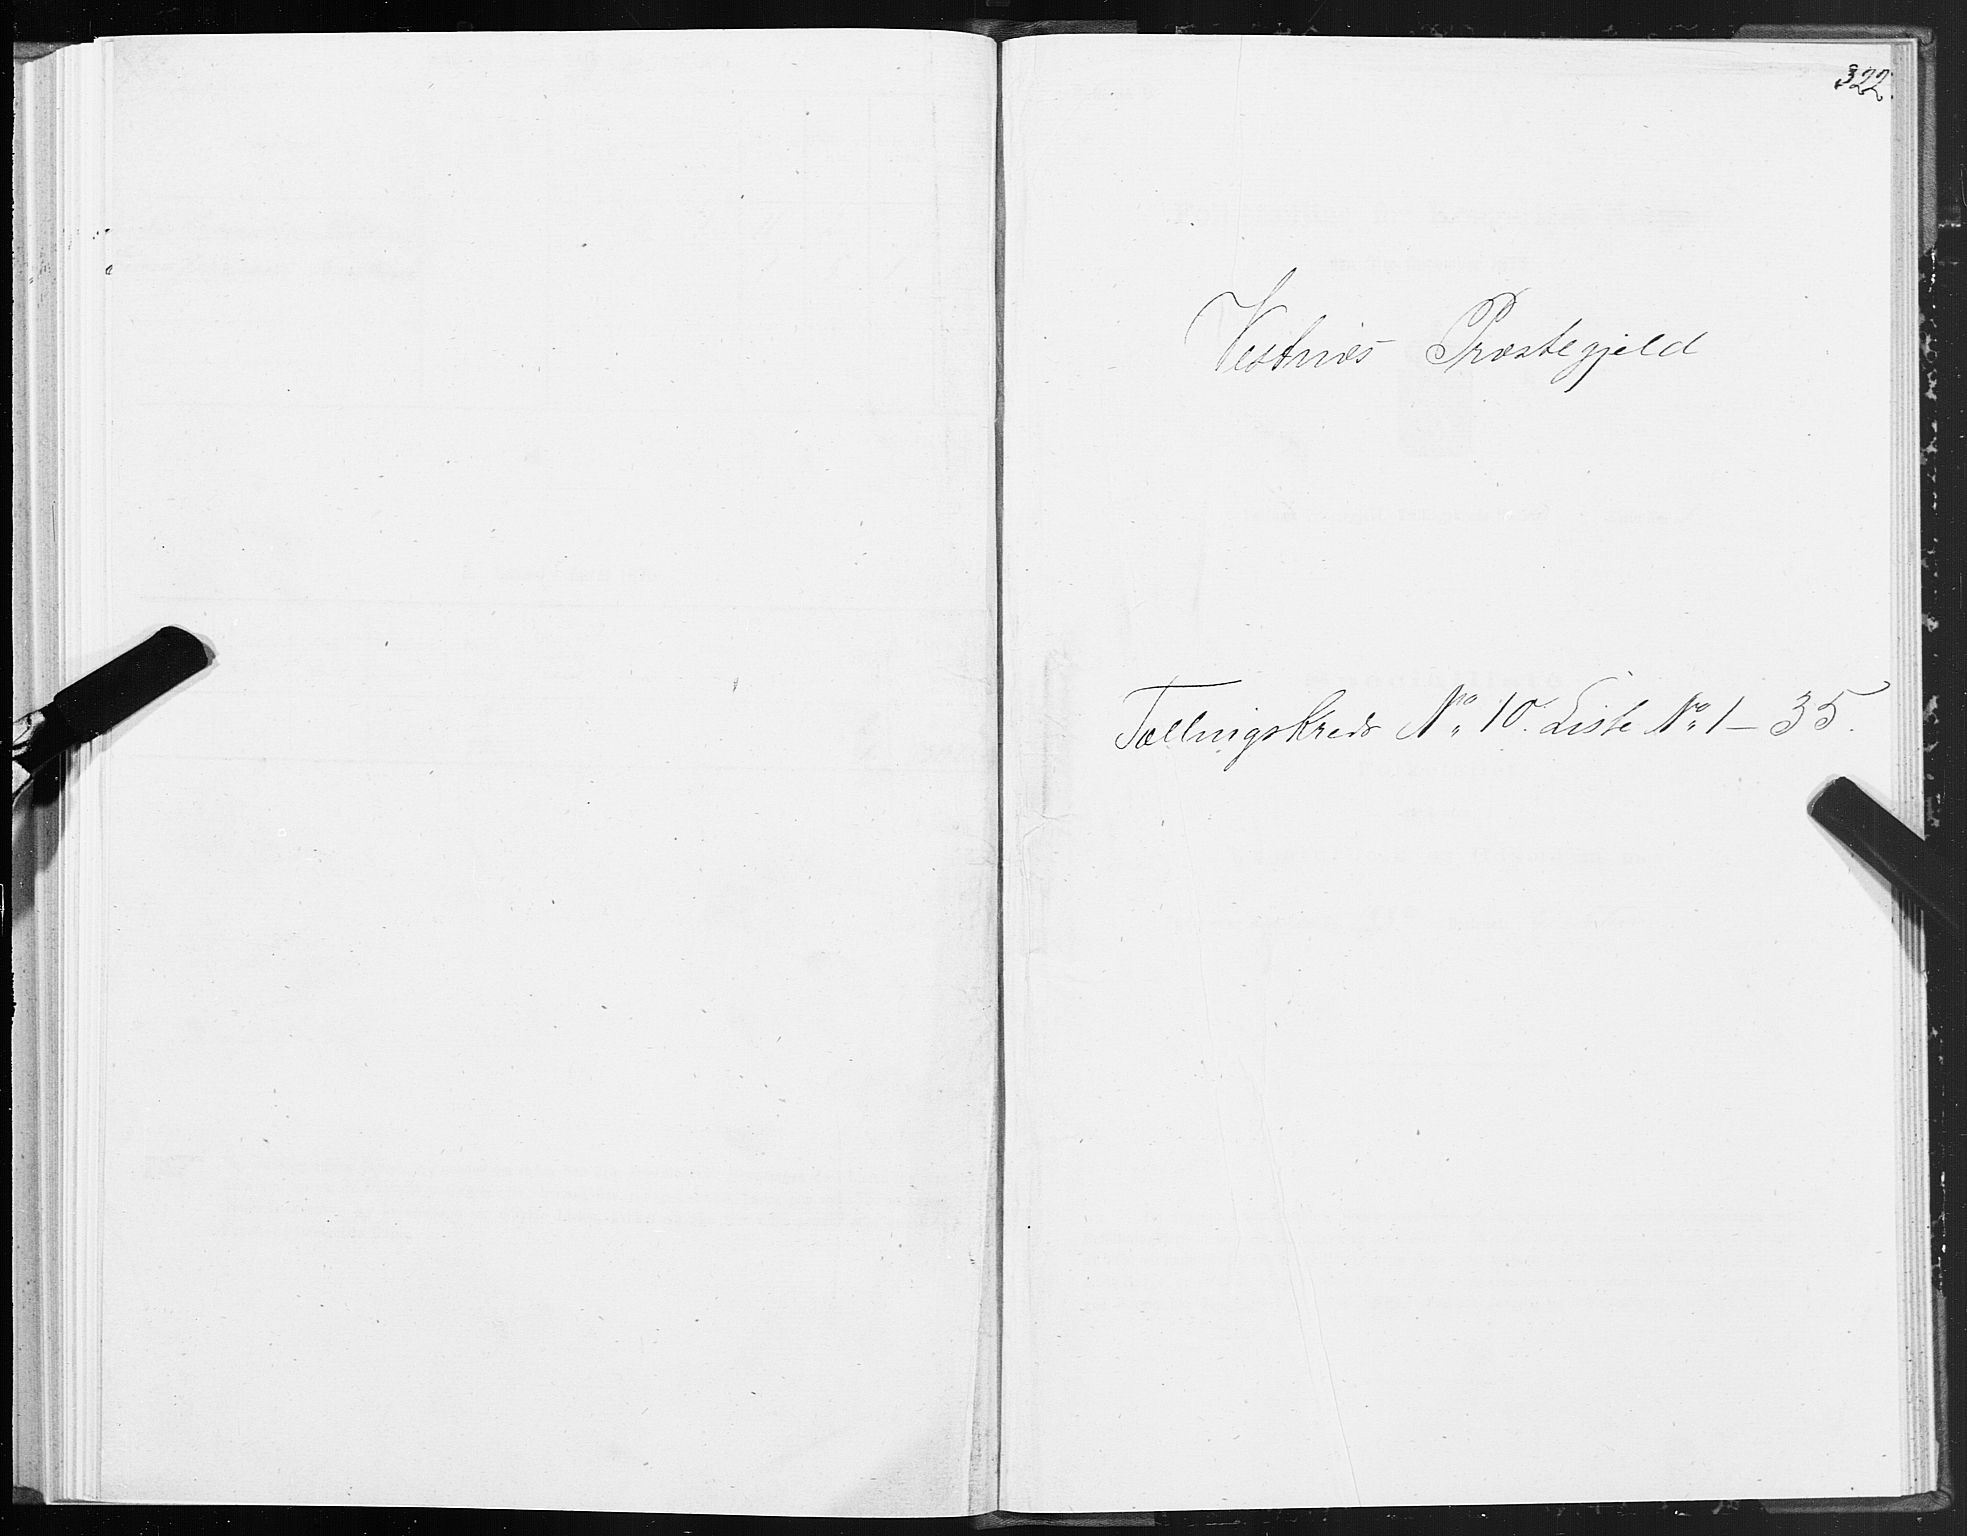 322.
Vestnæs Præstegjeld
Tællingskreds No 10. Liste No 1–35.